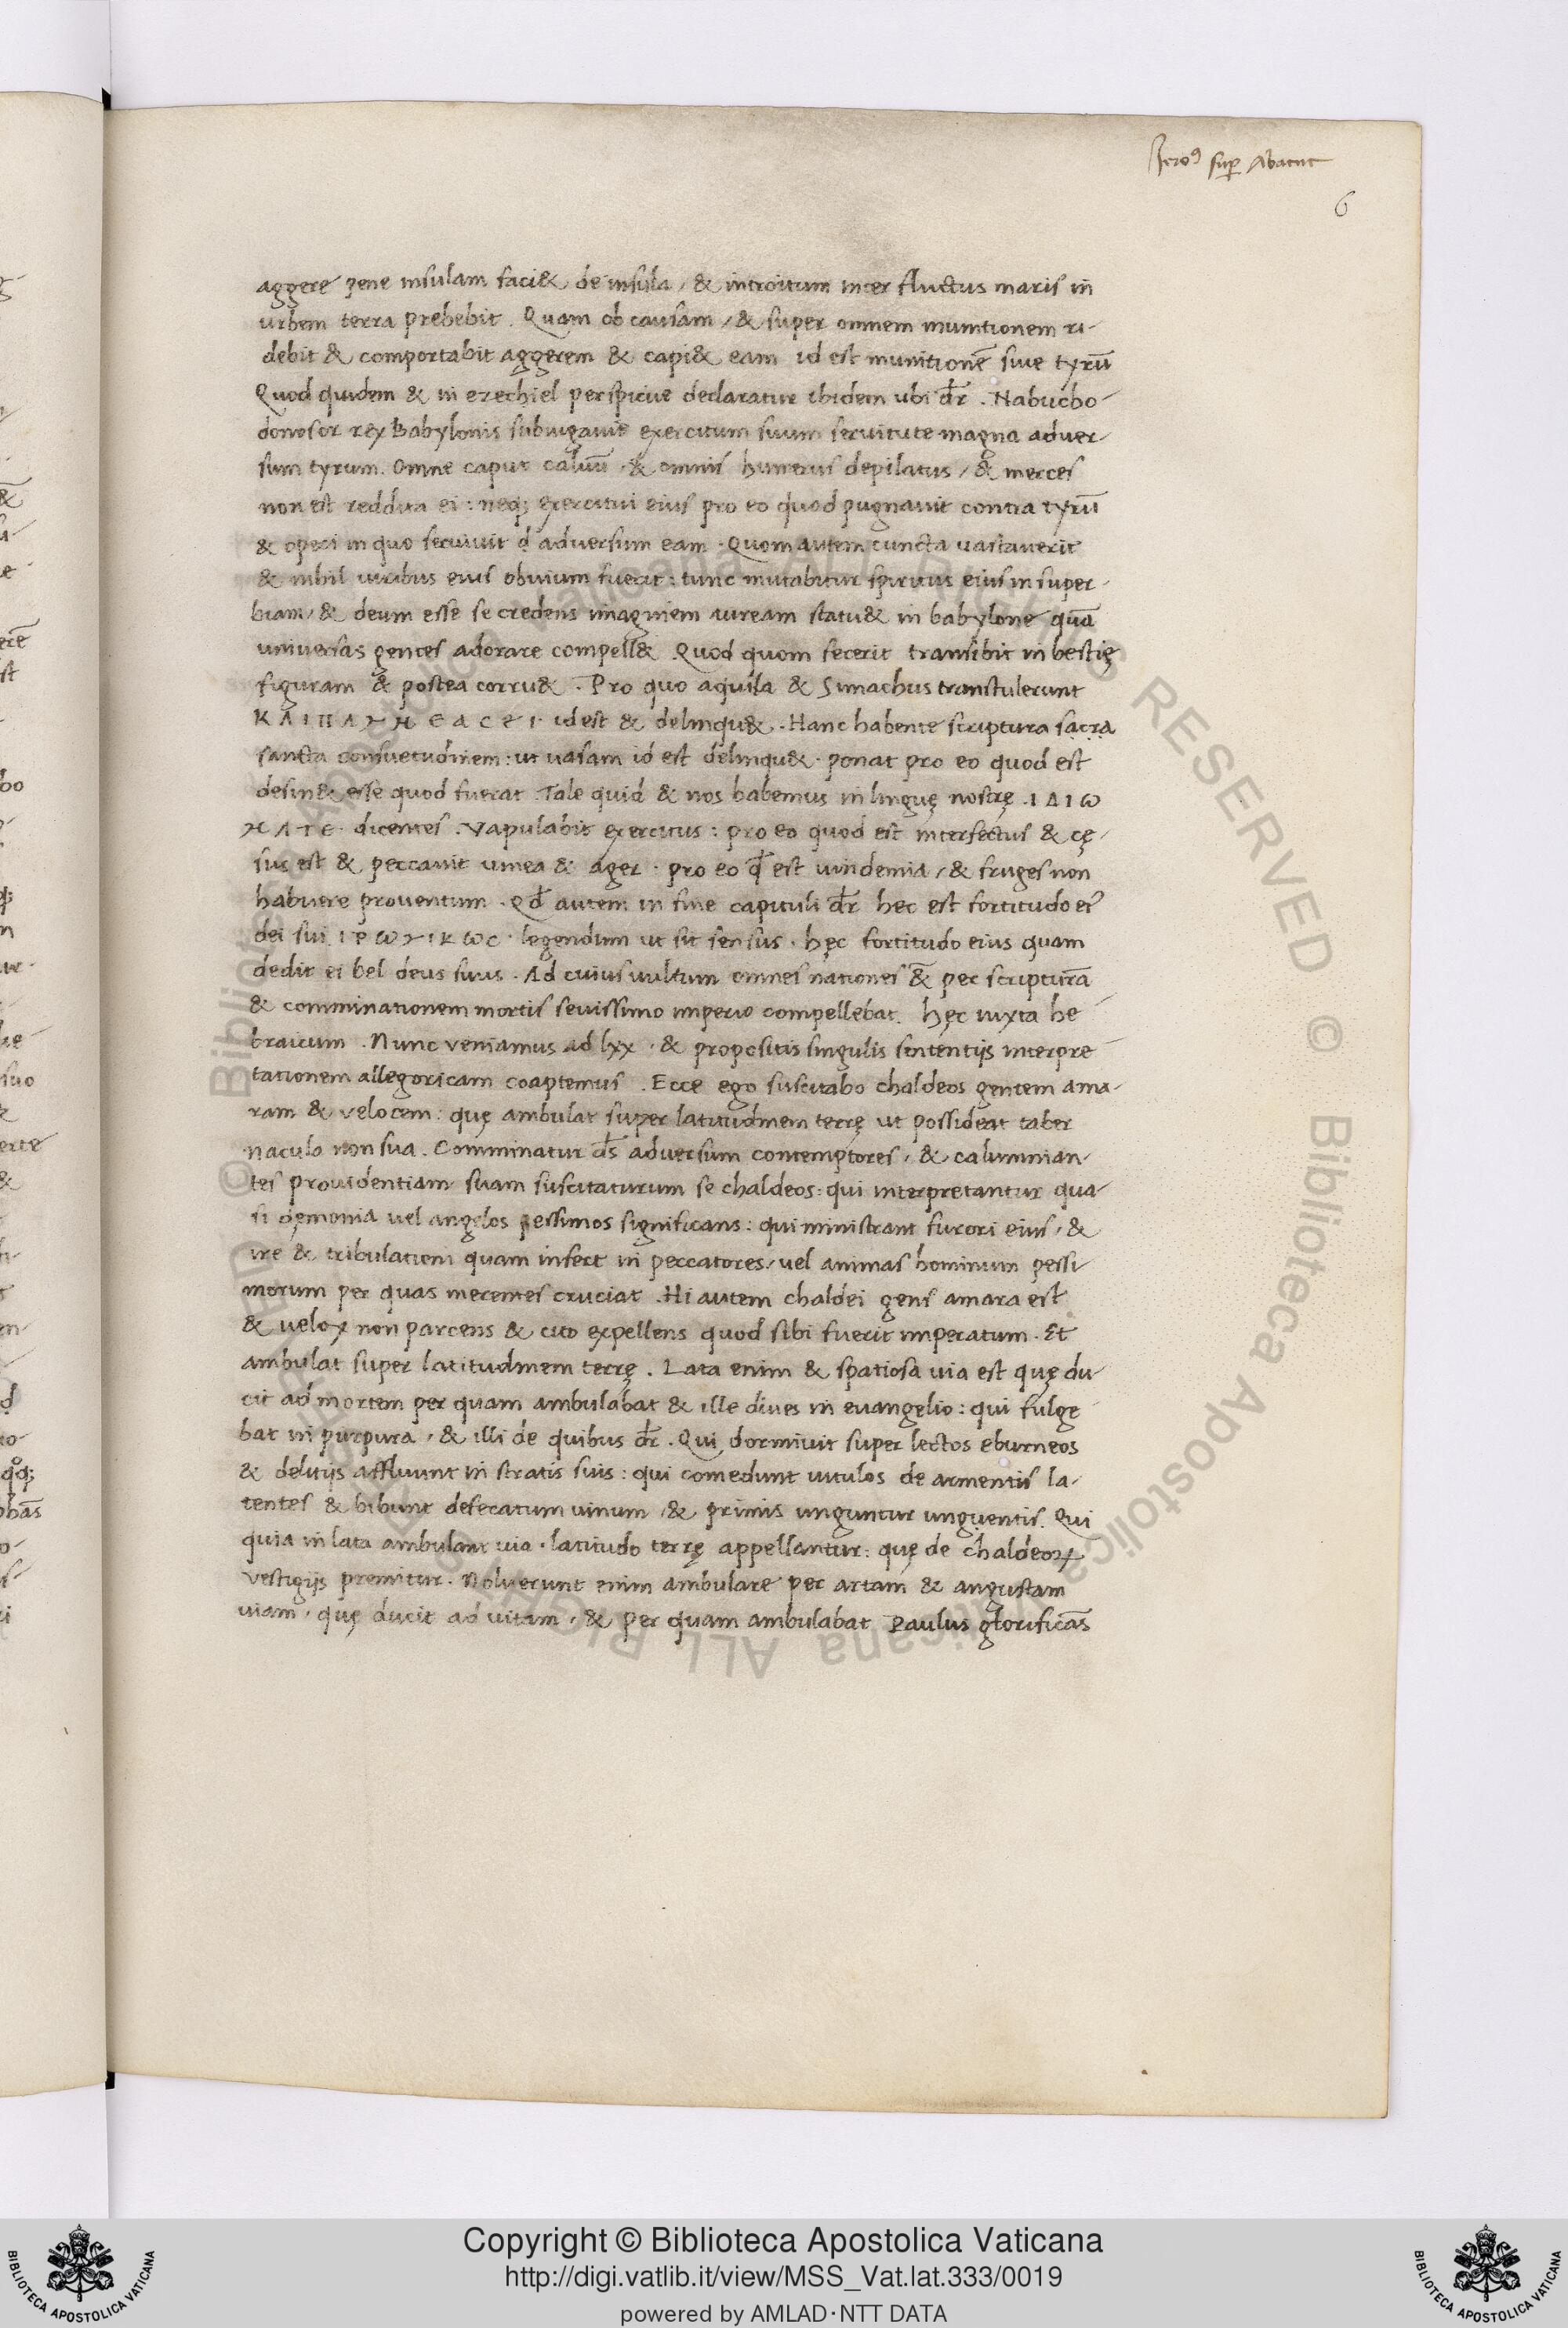 Jero⁹ sup̲ Abacuc
6
aggere pene insulam faci& de insula / & introitum inter fluctus maris in
urbem terra prebebit . Quam ob causam / & super omnem munitionem ri-
debit & comportabit aggerem & capi& eam id est munitionē siue tyrū
Quod quidem & in ezechiel perspicue declaratur ibidem ubi dr̄ . Nabucho-
donosor rex Babylonis subiugauit exercitum suum seruitute magna aduer-
sum tyrum . Omne caput caluū & omnis humerus depilatus / & merces
non est reddita ei : neq; exercitui eius pro eo quod pugnauit contra tyrū
& operi in quo seruiuit đ aduersum eam . Quom autem cuncta uastauerit
& nihil uiribus eius obuium fuerit : tunc mutabitur spiritus eius in super-
biam / & deum esse se credens imaginem auream statu& in babylone quā
uniuersas gentes adorare compell& Quod quom fecerit transibit in bestię
figuram & postea corru& . Pro quo aquila & Simachus transtulerunt
Κ Λ Ι Π Λ Η Μ Ε Λ Ϲ Ε Ι · id est & delinqu& . Hanc habente scriptura sacra
sancta consuetudinem : ut uasam id est delinqu& · ponat pro eo quod est
desin& esse quod fuerat . Tale quid & nos habemus in linguę nostrę . Ι Δ Ι ω
Μ Λ Τ Ε · dicentes . Vapulabit exercitus : pro eo quod est interfectus & cę-
sus est & peccauit uinea & ager · pro eo qđ est uindemia / & fruges non
habuere prouentum . Qđ autem in fine capituli dr̄ hec est fortitudo ei⁹
dei sui Ι Ρ ω Ν Ι Κ ω Ϲ · legendum ut sit sensus . hęc fortitudo eius quam
dedit ei bel deus suus . Ad cuius uultum omnes nationes &̄ per scripturā
& comminationem mortis seuissimo imperio compellebat . hęc iuxta he-
braicum . Nunc veniamus ad lxx · & propositis singulis sententijs interpre-
tationem allegoricam coaptemus . Ecce ego suscitabo chaldeos gentem ama-
ram & velocem : quę ambulat super latitudinem terrę ut possideat taber
nacula non sua . Comminatur ds̄ aduersum contemptores / & calumnian-
tes prouidentiam suam suscitaturum se chaldeos : qui interpretantur qua-
si demonia uel angelos pessimos significans : qui ministrant furori eius / &
ire & tribulationi quam infert in peccatores / uel animas hominum pessi-
morum per quas merentes cruciat . Hi autem chaldei gens amara est
& uelox non parcens & cito expellens quod sibi fuerit imperatum . Et
ambulat super latitudinem terrę . Lata enim & spatiosa uia est quę du-
cit ad mortem per quam ambulabat & ille diues in euangelio : qui fulge
bat in purpura / & illi de quibus dr̄ . Qui dormiuit super lectos eburneos
& delitijs affluunt in stratis suis : qui comedunt uitulos de armentis la-
tentes & bibunt defecatum uinum / & primis unguntur unguentis . Qui
quia in lata ambulant uia · latitudo terrę appellantur : quę de chaldeoꝝ
vestigijs premitur . Noluerunt enim ambulare per artam & angustam
uiam · quę ducit ad uitam / & per quam ambulabat Paulus glorificās
Copyright © Biblioteca Apostolica Vaticana
http://digi.vatlib.it/view/MSS_Vat.lat.333/0019
powered by AMLAD·NTT DATA